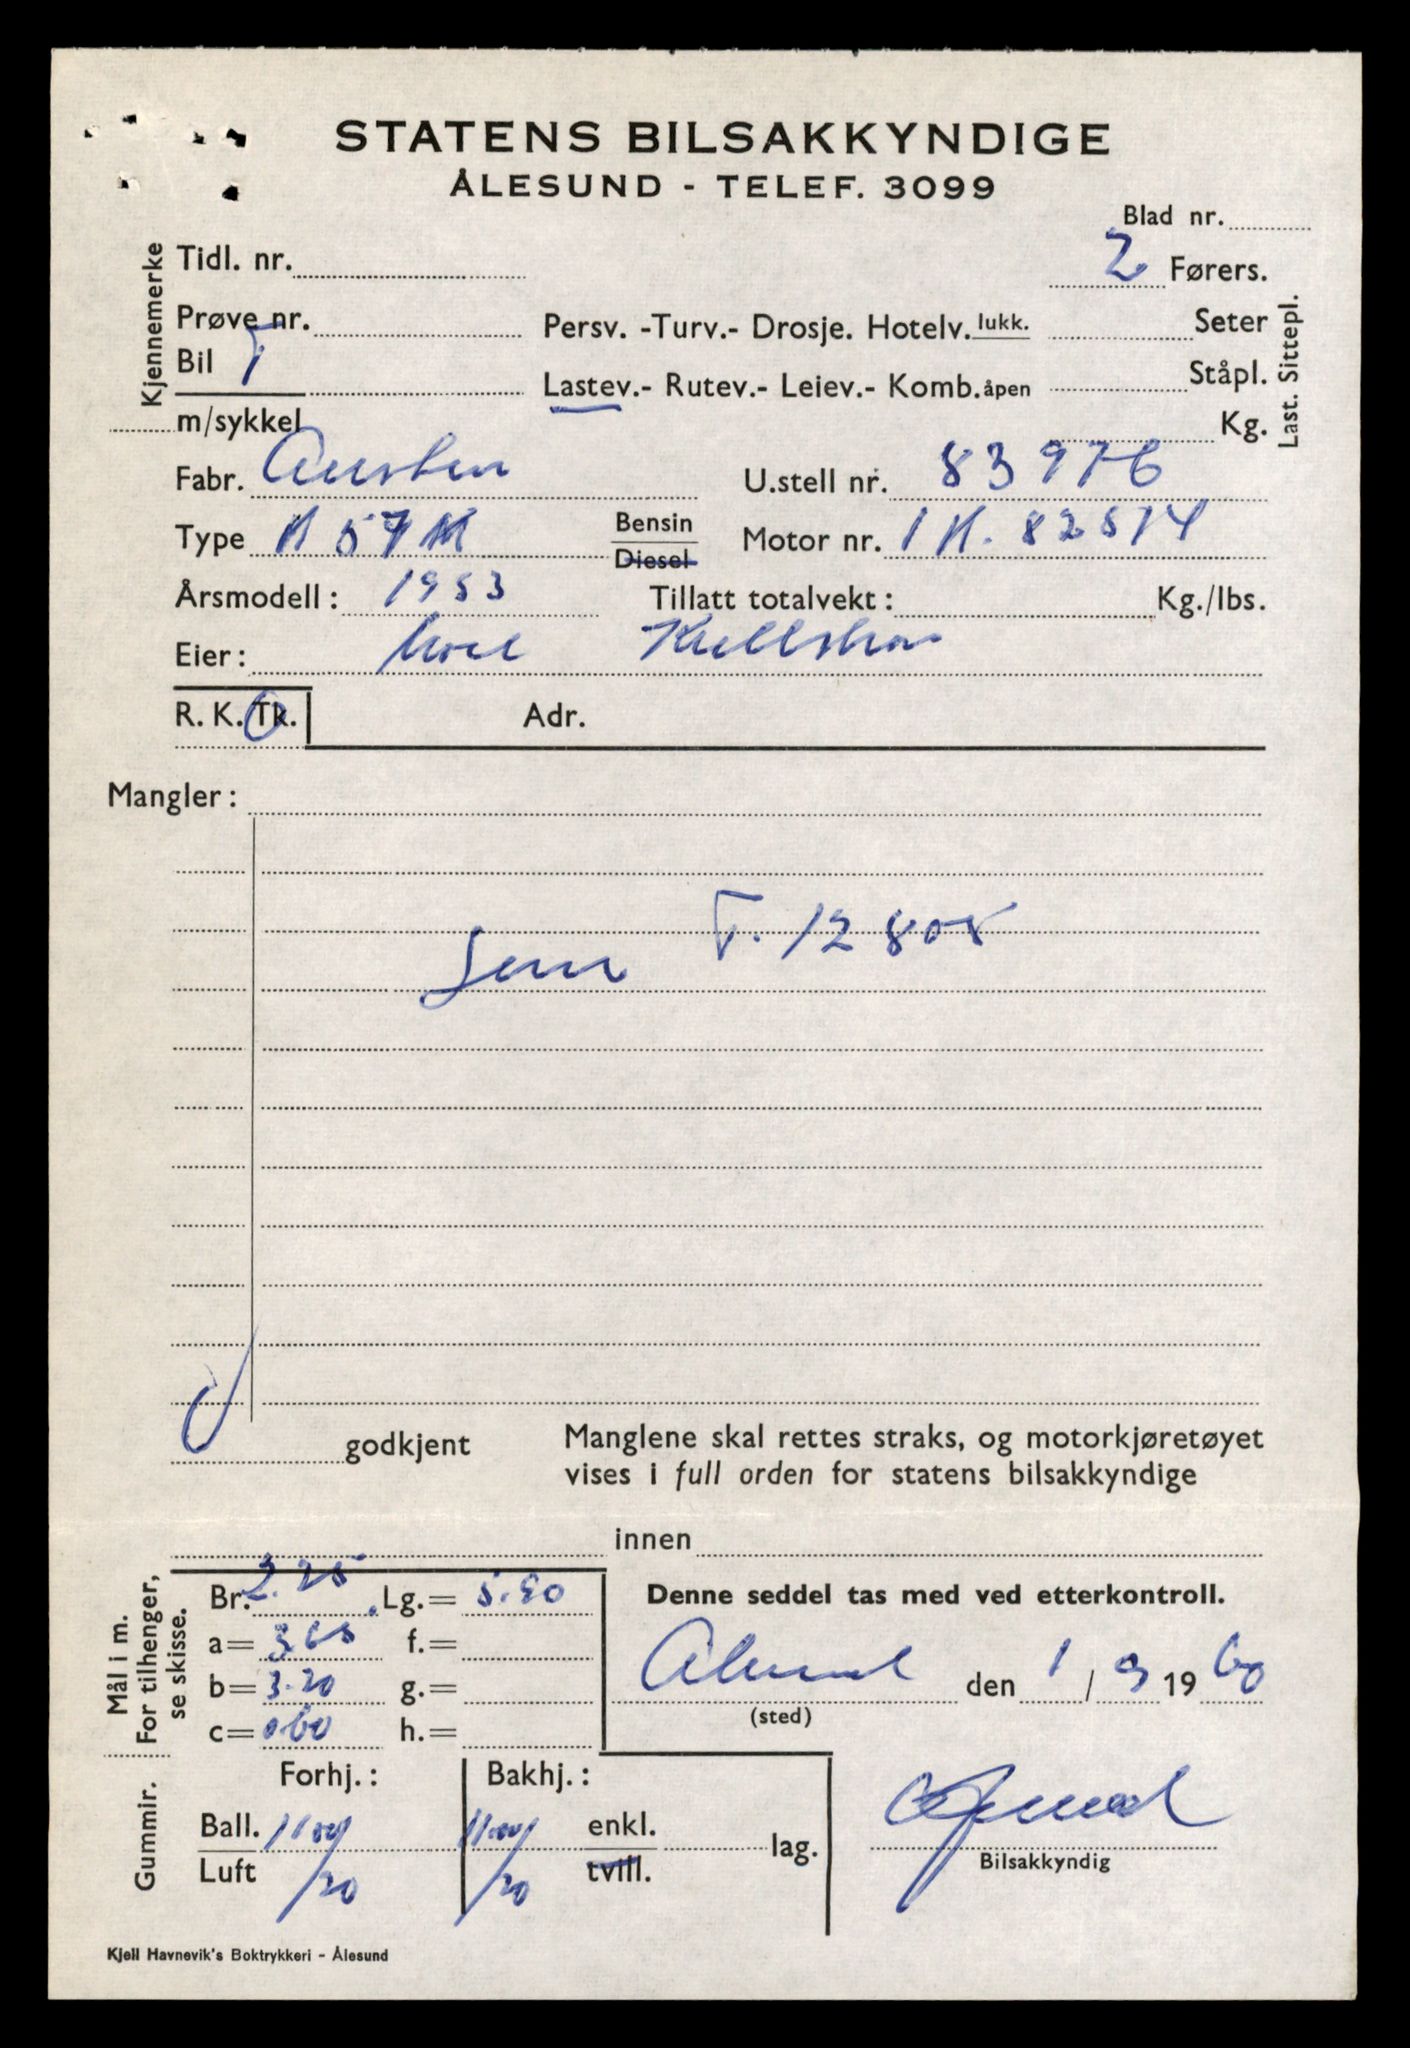 STATENS BILSAKKYNDIGE
ÅLESUND - TELEF. 3099
Blad nr.
Kjennemerke
Tidl. nr.
2 Førers.
Prøve nr.
Persv. -Turv.- Drosje. Hotelv. lukk.
Seter
Bil T
Lastev.- Rutev.- Leiev.- Komb. åpen
Ståpl.
m/sykkel
Kg.
Last. Sittepl.
Fabr. Austin
U.stell nr. 83976
Type
Bensin
Diesel
Motor nr. 1K. 82514
Årsmodell: 1953
Tillatt totalvekt: Kg./lbs.
Eier:
R. K. Tk.
Adr.
Mangler:
Som T. 12808
godkjent
Manglene skal rettes straks, og motorkjøretøyet
vises i full orden for statens bilsakkyndige
innen
Mål i m.
For tilhenger,
se skisse.
Br. 2.25 Lg.= 5.90
a= 3.65 f.=
b= 3.20 g.=
c= 0.60 h.=
Denne seddel tas med ved etterkontroll.
Ålesund den 1/9 1960
(sted)
Gummir.
Forhj.: Bakhj.:
Ball. 11.00/20 11.00/20 enkl. lag.
Luft tvill.
Bilsakkyndig
Kjell Havnevik's Boktrykkeri - Ålesund